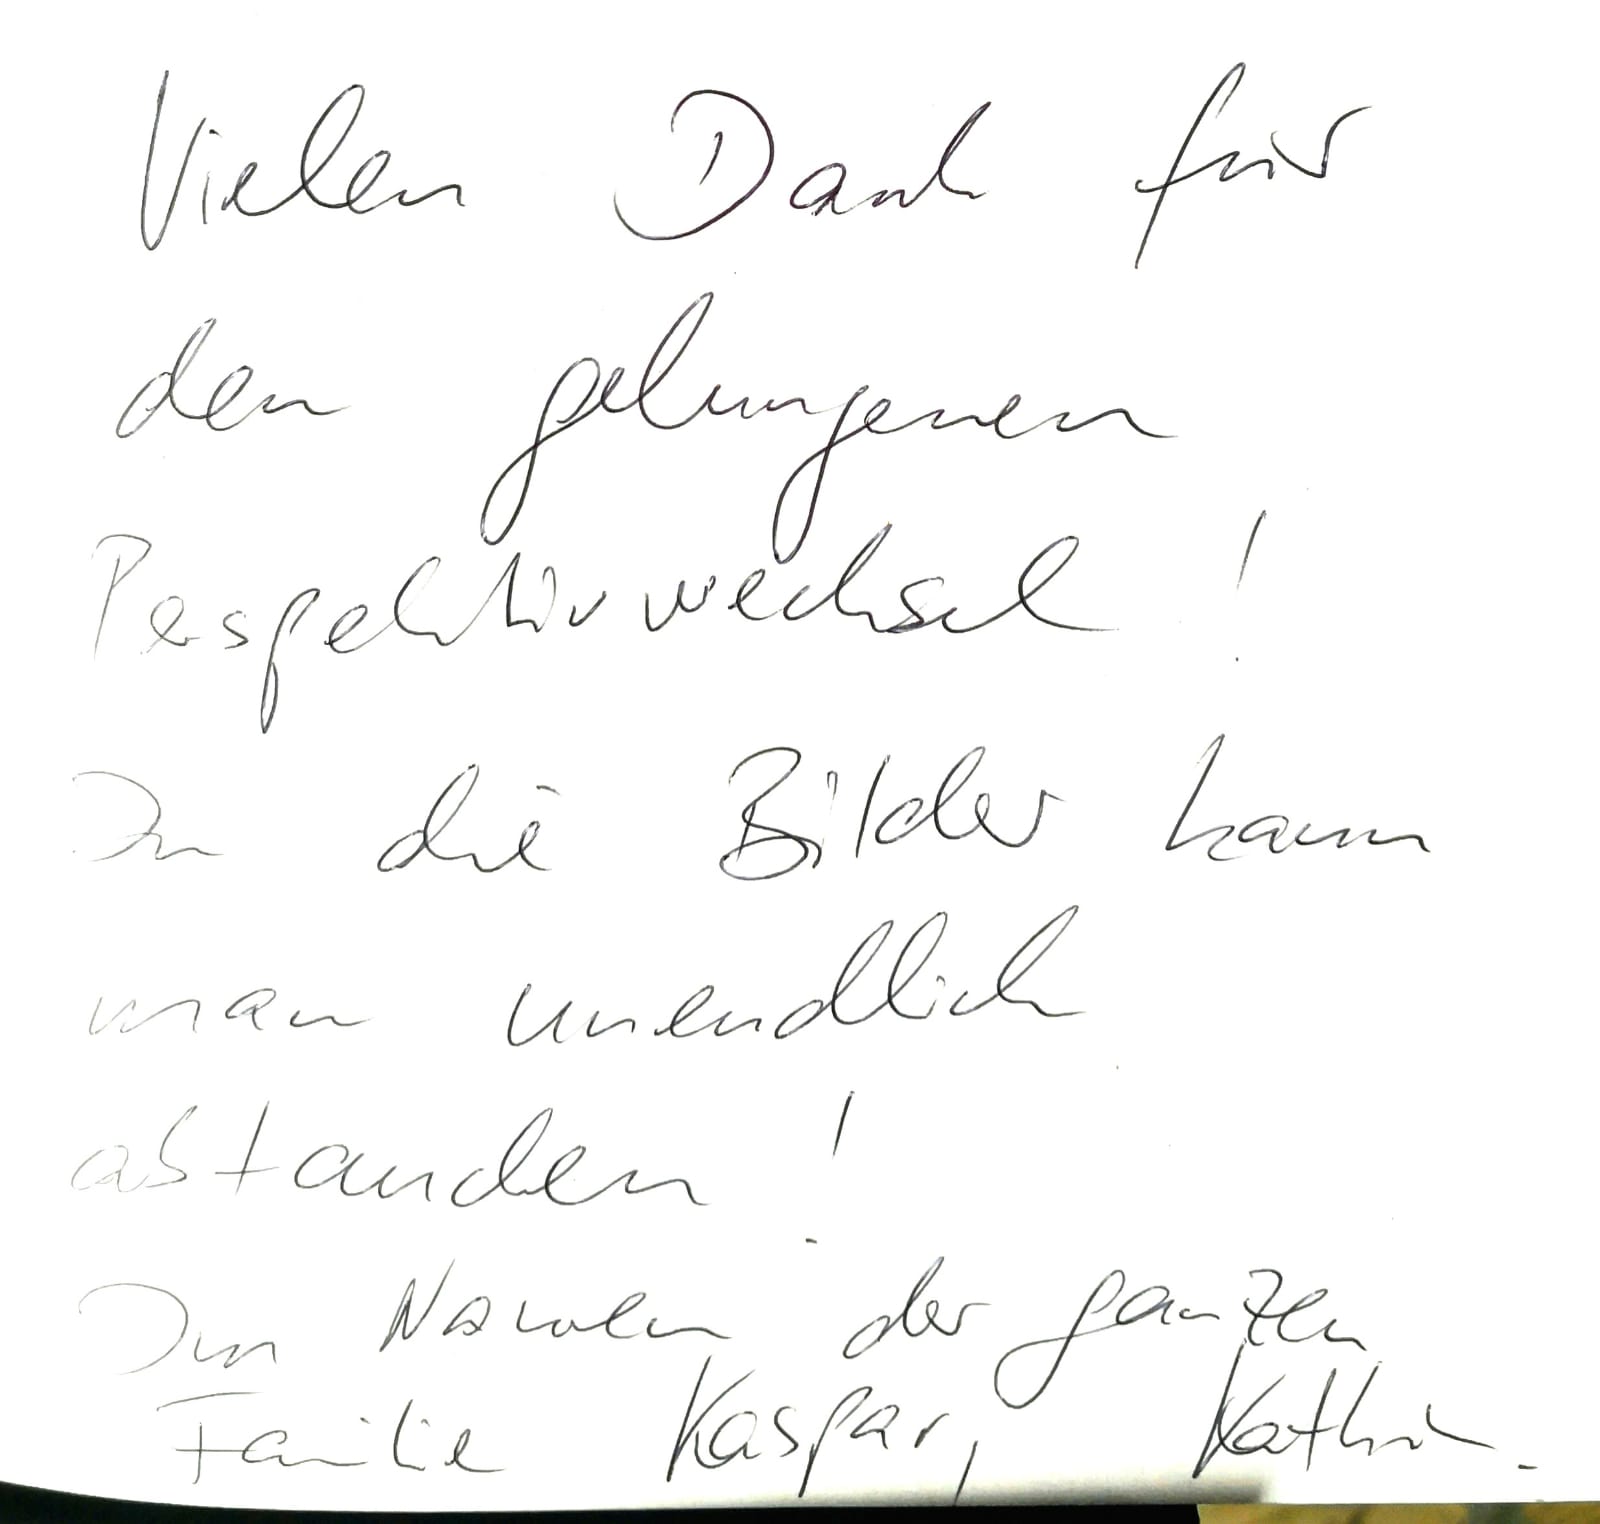 Vielen Dank für
den gelungenen
Perspektivwechsel!
In die Bilder kann
man unendlich
abtauchen!
Im Namen der ganzen
Familie Kaspar, Kathrin.